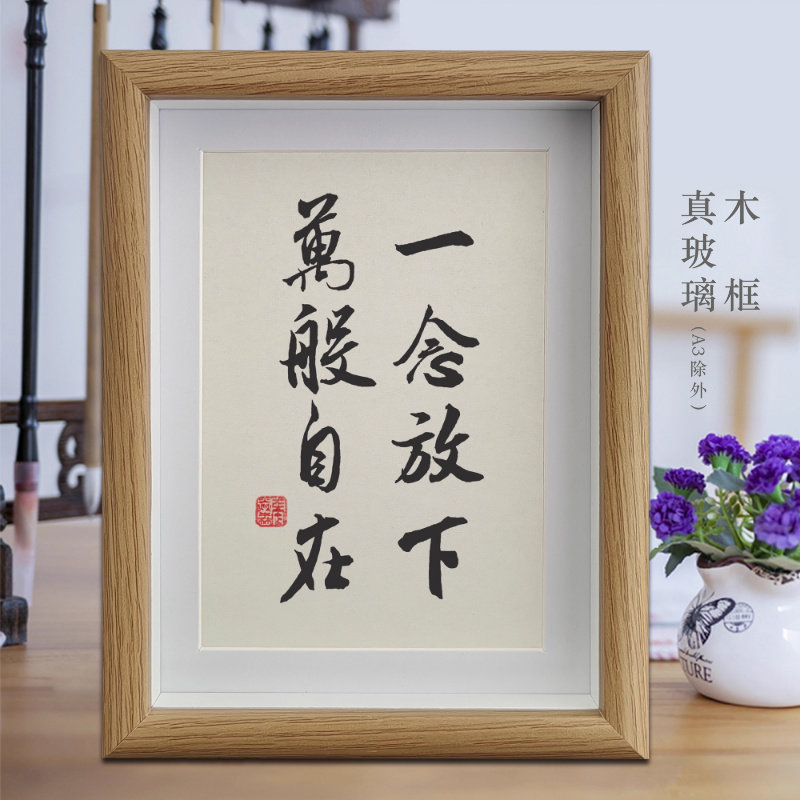 一念放下
萬般自在
木框
真玻璃
(A3除外)
TURE